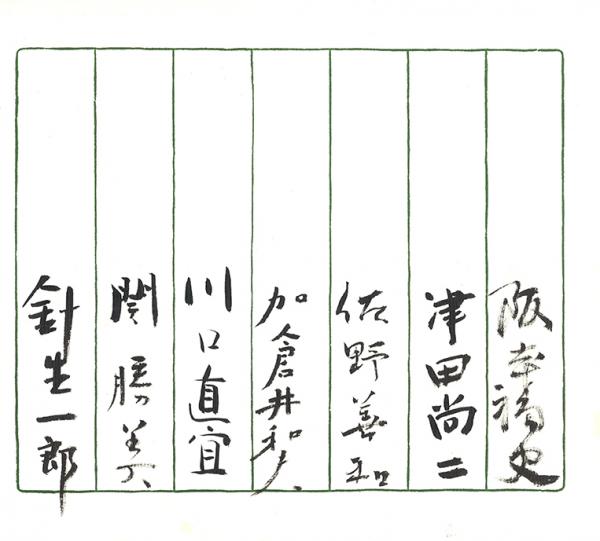 阪本福史
津田尚二
佐野善和
加倉井和夫
川口直宜
関勝美
針生一郎